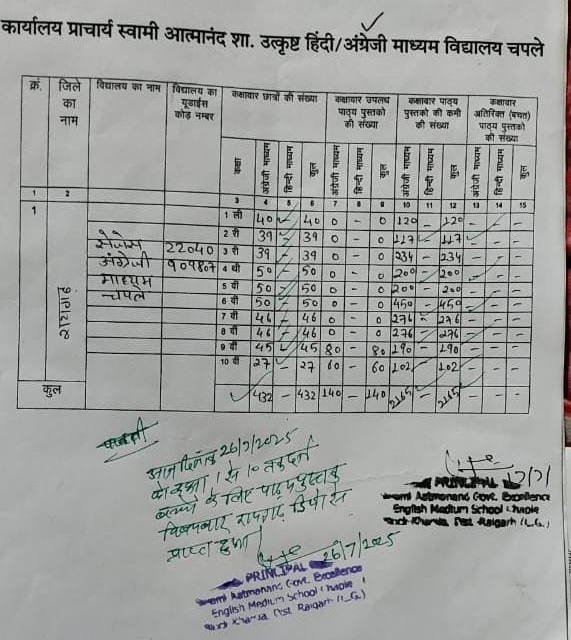 कार्यालय प्राचार्य स्वामी आत्मानंद शा. उत्कृष्ट हिंदी/अंग्रेजी माध्यम विद्यालय चपले
क्रं. जिले का नाम विद्यालय का नाम विद्यालय का यूडाईस कोड नम्बर कक्षावार छात्रों की संख्या कक्षावार उपलब्ध पाठ्य पुस्तको की संख्या कक्षावार पाठ्य पुस्तको की कमी की संख्या कक्षावार अतिरिक्त (बचत) पाठ्य पुस्तको की संख्या
कक्षा अंग्रेजी माध्यम हिन्दी माध्यम कुल अंग्रेजी माध्यम हिन्दी माध्यम कुल अंग्रेजी माध्यम हिन्दी माध्यम कुल अंग्रेजी माध्यम हिन्दी माध्यम कुल
1 2 3 4 5 6 7 8 9 10 11 12 13 14 15
1 रायगढ़ सेजेस अंग्रेजी माध्यम चपले 22040 909807
1 ली 40 - 40 0 - 0 120 - 120 - - -
2 री 39 - 39 0 - 0 117 - 117 - - -
3 री 39 - 39 0 - 0 234 - 234 - - -
4 थी 50 - 50 0 - 0 200 - 200 - - -
5 वी 50 - 50 0 - 0 200 - 200 - - -
6 वी 50 - 50 0 - 0 450 - 450 - - -
7 वी 46 - 46 0 - 0 276 - 276 - - -
8 वी 46 - 46 0 - 0 276 - 276 - - -
9 वी 45 - 45 80 - 80 190 - 190 - - -
10 वी 27 - 27 60 - 60 102 - 102 - - -
कुल 432 - 432 140 - 140 2165 - 2165 - - -
पावती
आज दिनांक 26/7/2025
को कक्षा 1 से 10 तक
बच्चों के लिए पाठ्यपुस्तक
रायगढ़ डिपो से
प्राप्त हुआ।
26/7/2025
PRINCIPAL
Swami Aatmanand Govt. Excellence
English Medium School Chaple
Dist. Raigarh
PRINCIPAL
Swami Aatmanand Govt. Excellence
English Medium School Chaple
Dist. Raigarh